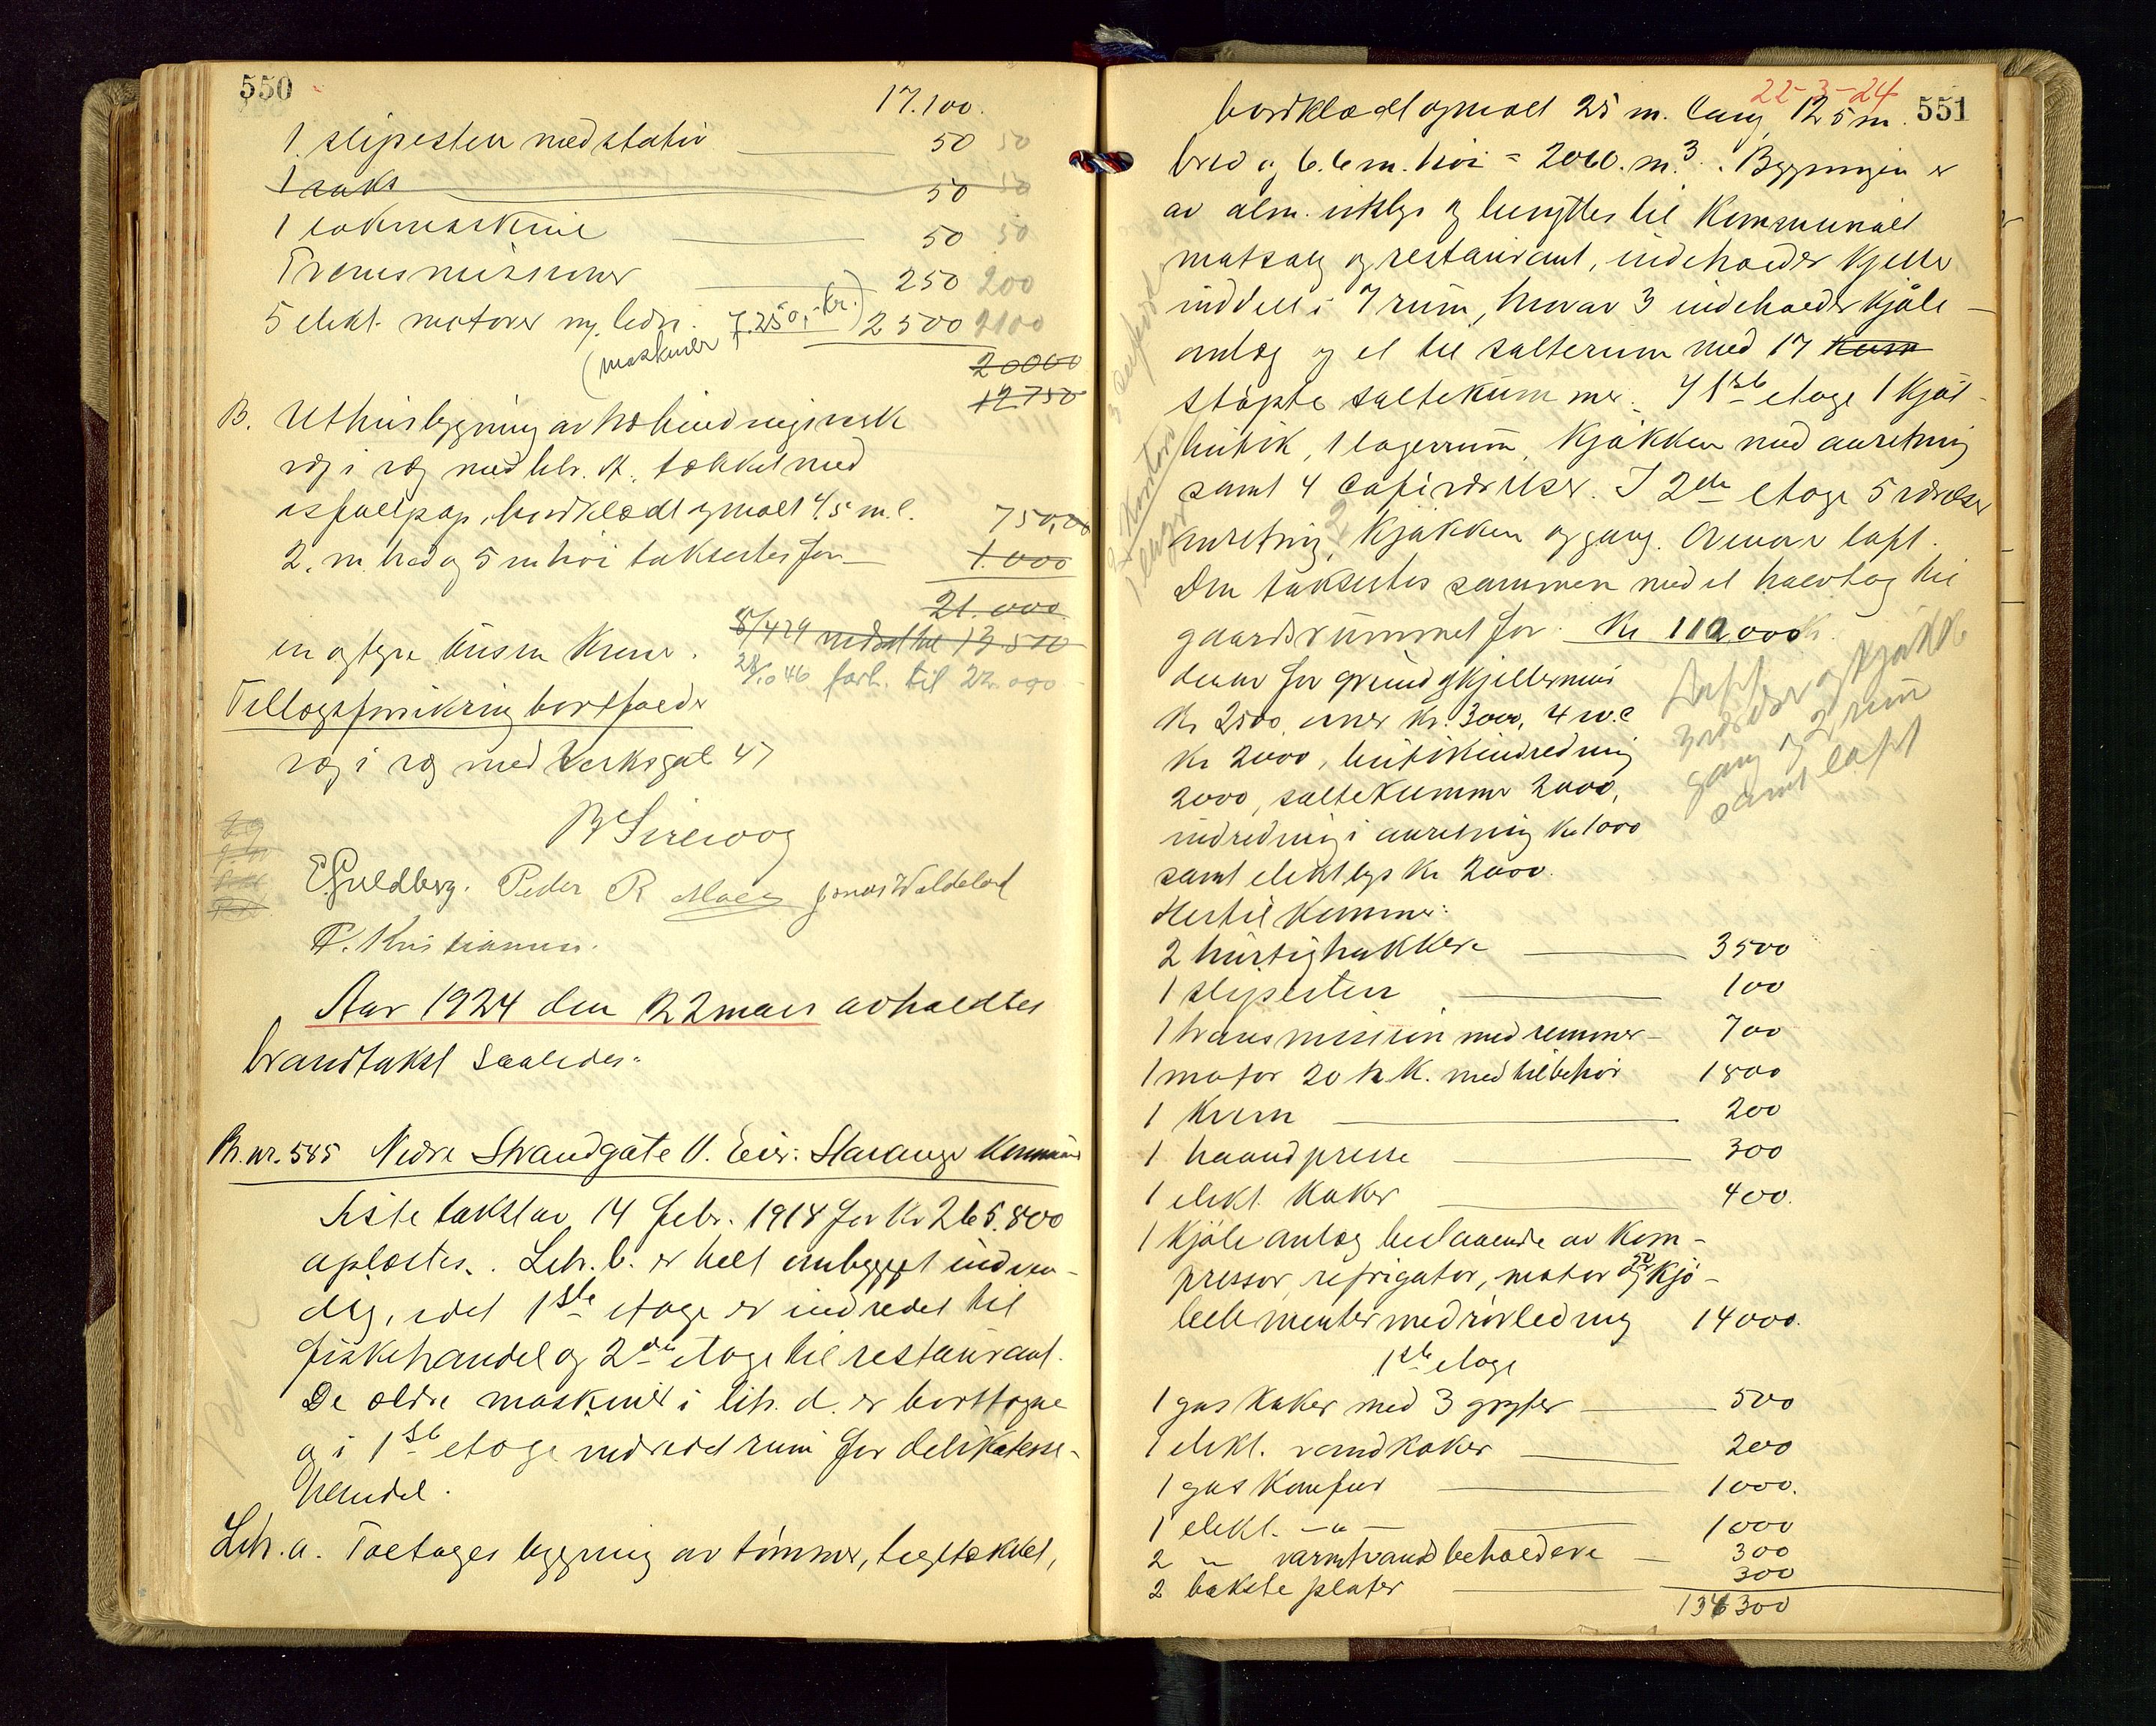 550
17.100.
1 slipesten med stativ 50 50
1 saks 50 50
1 lokmaskine 50 50
Transmissioner 250 200
5 elekt. motorer m. ledn. 2500 2100
(maskiner 7.250,- kr.)
20000
12750
B. Uthusbygning av
væg i væg med litr. A. tækket med
asfaltpap, bordklædt og malt 4,5 m. l. 750,00
2. m. bred og 5 m høi takseres for 1.000
21.000
en og tyve tusen kroner. 8/4 29 nedsat til 13500
28/10 46 forh. til 22.000
Tillægsforsikring bortfalder
væg i væg med Verksgat 47
B Sirevaag
E Guldberg. Peder R Moe Jonas Waldeland
F. Kristiansen.
Aar 1924 den 22 mars avholdtes
brandtakst saaledes:
Br. nr. 585 Nedre Strandgate 11. Eier: Stavanger Kommune
Siste takst av 14 febr. 1918 for Kr 265.800
opløstes. Litr. b. er helt ombygget indven-
dig, idet 1ste etage er indredet til
fiskehandel og 2den etage til restaurant.
De ældre maskiner i litr. d. er borttagne
og i 1ste etage indredet rum for delikatesse-
handel.
Litr. a. Toetages bygning av tømmer, teglstækket,
22-3-24
551
bordklædt og malt 25 m. lang 12,5 m.
bred og 6.6 m. høi = 2060. m³. Bygningen er
av alm. utstyr og benyttes til Kommunalt
matsalg og restaurant, indeholder kjelder
inddelt i 7 rum, hvorav 3 indeholder kjøle-
anlæg og et til salterum med 17 kum
støpte saltekummer. I 1ste etage 1 kjøt-
butik, 1 lagerrum, kjøkken med anretning
samt 4 caféværelser. I 2den etage 5 værelser
anretning, kjøkken og gang. Ovenover loft.
Den takseres sammen med et halvtag til
gaardsrummet for Kr 112,000
derav for grund og kjellermur
Kr 2500, ovner Kr. 3000, 4 w.c
Kr 2000, butikindredning
2000, saltekummer 2000,
indredning i anretning Kr 1000
samt elekt lys Kr 2000.
Loft
3 værelser og kjøkken
gang og 2 rum
samt loft
Hertil kommer:
2 hurtighakkere 3500
1 slipesten 100
1 transmission med remmer 700
1 motor 20 h.K. med tilbehør 1800
1 kvern 200
1 haandpresse 300
1 elekt. koker 400.
1 kjøleanlæg bestaaende av kom-
pressor, refrigator, motor og 50 kjø-
leelementer med rørledning 14000.
1ste etage
1 gas koker med 3 gryter 500
1 elekt. vandkoker 200
1 gas komfur 1000.
1 elekt. -"- 1000
2 " varmtvandsbeholdere 300
2 bakste plater 300
136300